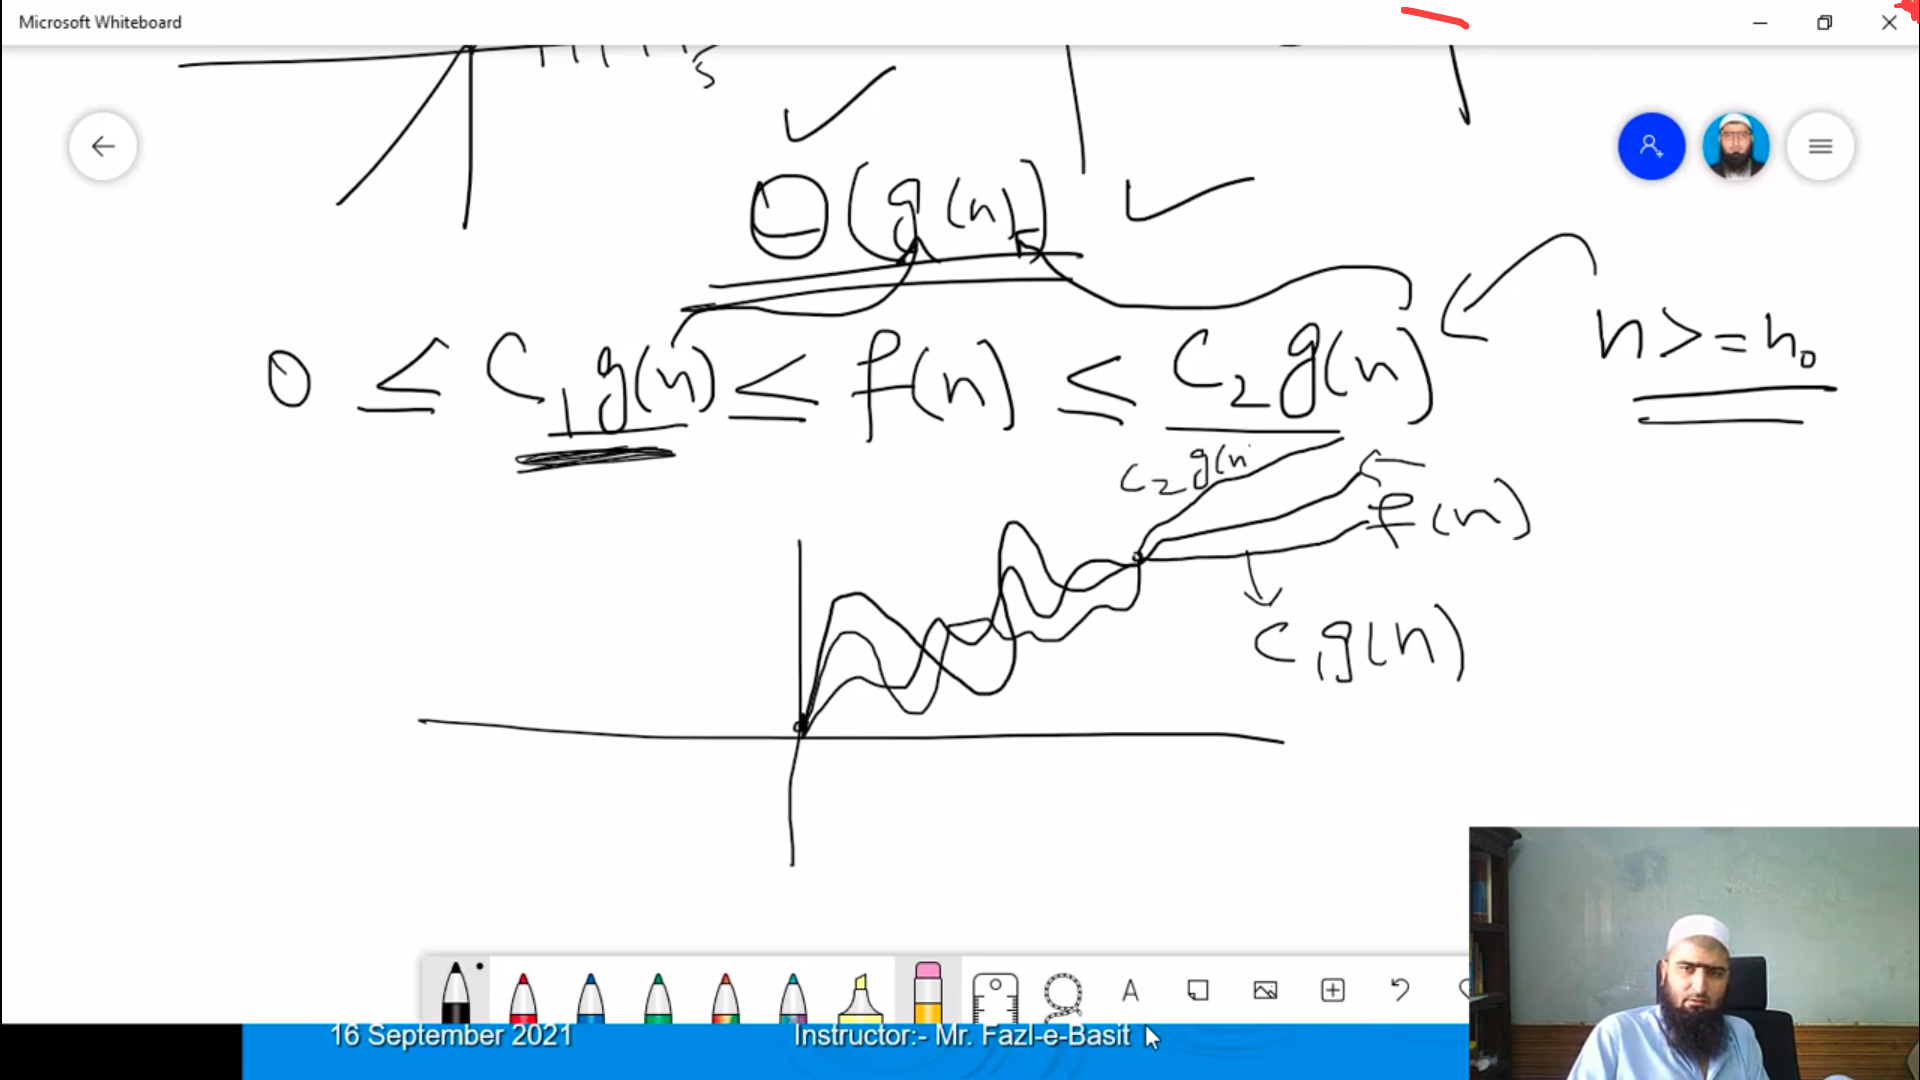 Microsoft Whiteboard
5
Θ(g(n))
0 ≤ C₁g(n) ≤ f(n) ≤ C₂g(n)
n >= n₀
C₂g(n
f(n)
C₁g(n)
A
16 September 2021
Instructor:- Mr. Fazl-e-Basit